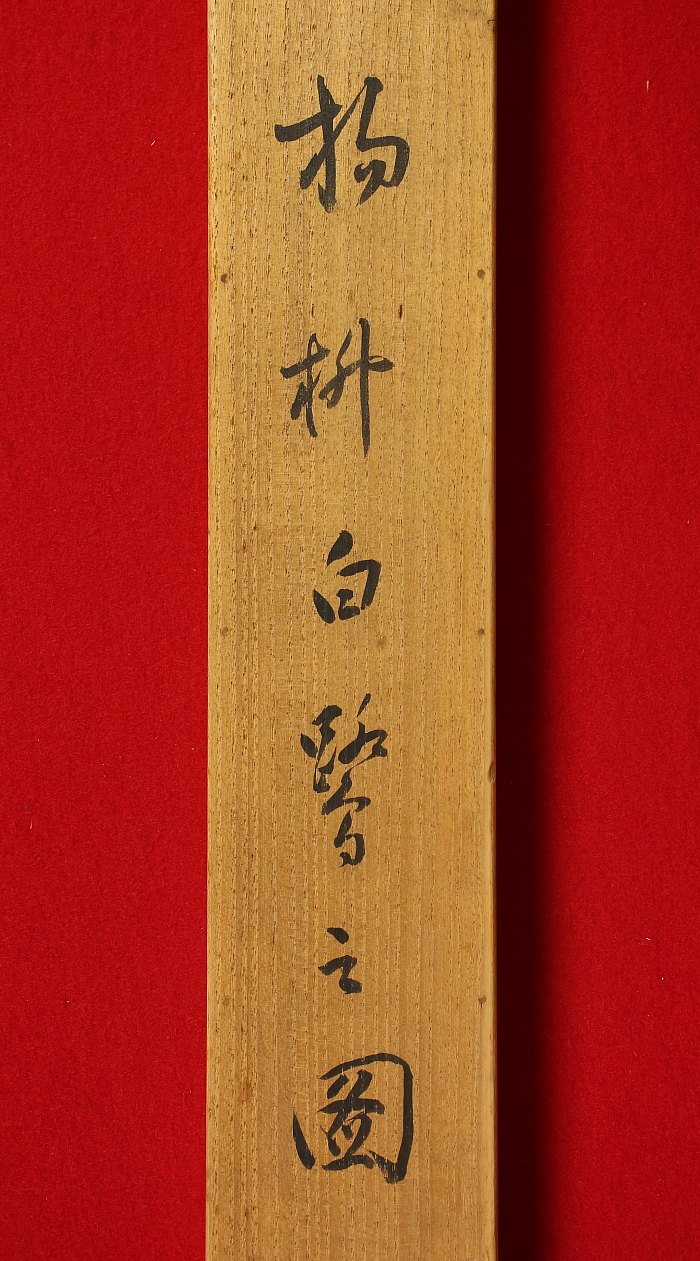 楊柳白鷺之圖